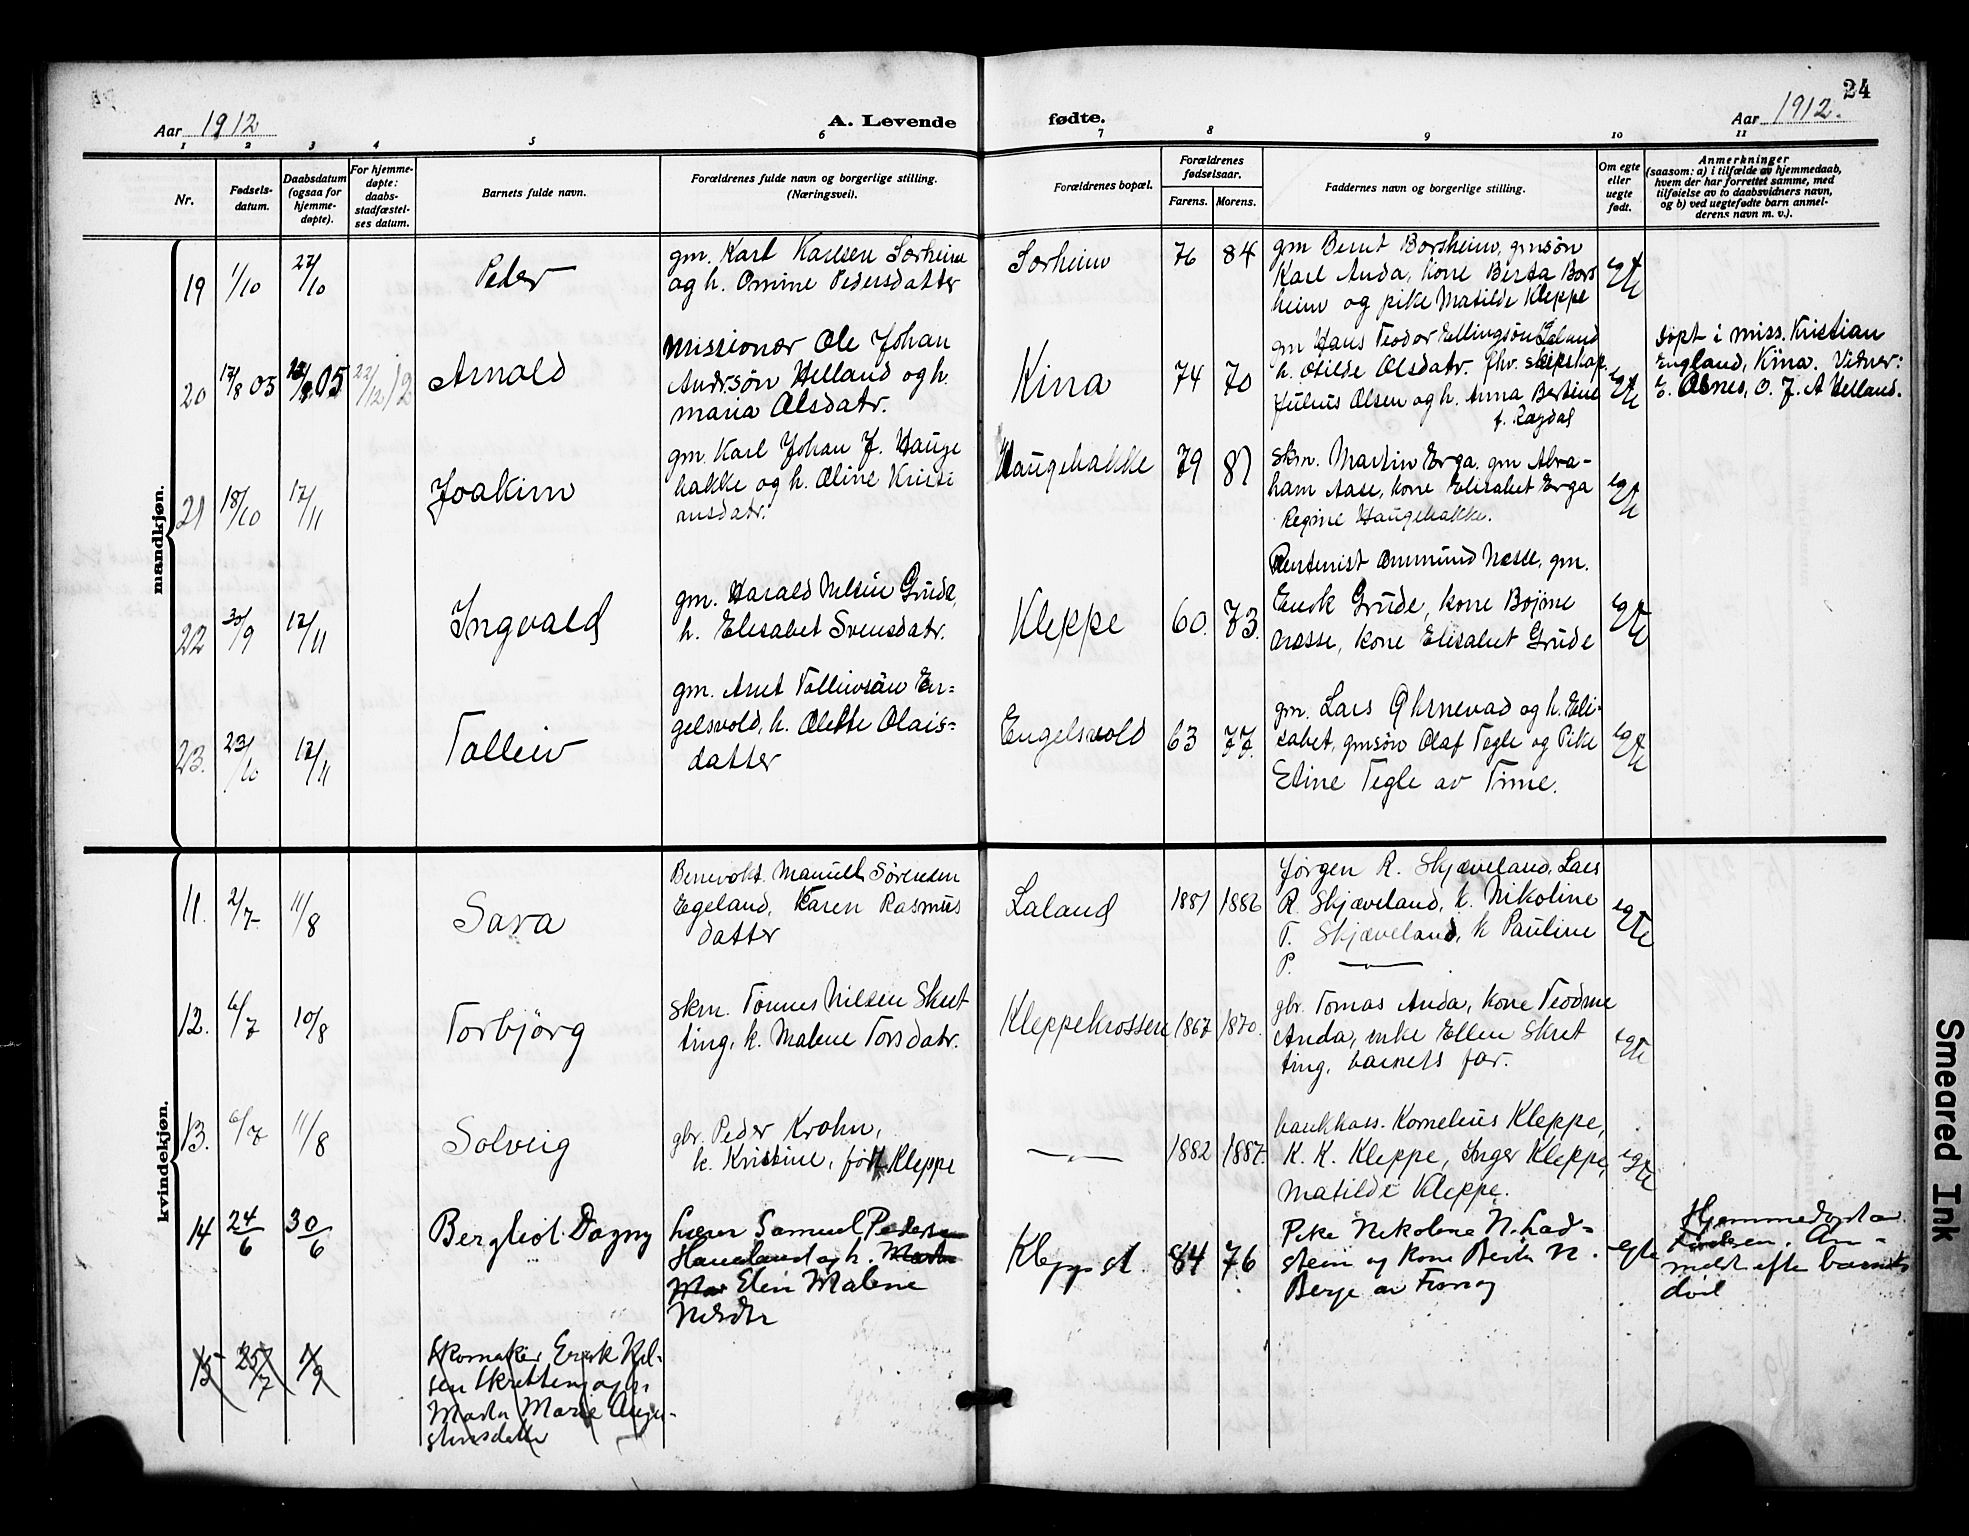 24
Aar 1912
A. Levende
fødte.
Aar 1912.
1 2 3 4 5 6 7 8 9 10 11
Nr.
Fødsels-
datum.
Daabsdatum
(ogsaa for
hjemme-
døpte).
For hjemme-
døpte:
daabs-
stadfæstel-
ses datum.
Barnets fulde navn.
Forældrenes fulde navn og borgerlige stilling.
(Næringsvei).
Forældrenes bopæl.
Forældrenes
fødselsaar.
Farens. Morens.
Faddernes navn og borgerlige stilling.
Om egte
eller
uegte
født.
Anmerkninger
(saasom: a) i tilfælde av hjemmedaab,
hvem der har forrettet samme, med
tilføielse av to daabsvidners navn,
og b) ved uegtefødte barn anmel-
derens navn m. v.).
mandkjøn.
19 1/10 27/10 Peder
gm. Karl Karlsen Sørheim
og h. Omine Pedersdatter
Sørheim 76 84
gm Bernt Borsheim, gmsøn
Karl Anda, kone Berta Bors
heim og pike Matilde Kleppe
egte
20 17/8 05
Arnold
Missionær Ole Johan
Andrsøn Helland og h.
Maria Olsdatr.
Kina 74 70
gm Hans Teodor Ellingsøn Laland
h. Otilde Olsdatr.
Julius Olsen og h. Anna Bertine
f. Ragdal
egte
Døpt i miss. Kristian
England, Kina. Vidner:
O. J. A Helland.
21 18/10 17/11 Joakim
gm. Karl Johan J. Hauge
bakke og h. Oline Kristi
ansdatr.
Haugebakke 79 87
Skm. Martin Erga. gm Abra-
ham Aase, kone Elisabet Erga
Regine Haugebakke.
egte
22 30/9 17/11 Ingvald
gm. Harald Nilsen Grude,
h. Elisabet Svensdatr.
Kleppe 60. 73.
Rentenist Ommund Næsse, gm.
Enok Grude, kone
Næsse, kone Elisabet Grude
egte
23. 23/10 17/11 Tolleiv
gm. Arnt Tollivsøn En=
gelsvold, h. Olette Olais=
datter
Engelsvold 63 77.
gm. Lars Øksnevad og h. Eli-
sabet, gmsøn Olaf Tegle og Pike
Eline Tegle av Time.
egte
kvindekjøn.
11. 2/7 11/8 Sara
Manuell Sørensen
Egeland, Karen Rasmus
datter
Laland 1881 1882
Jørgen R. Skjæveland, Lars
R. Skjæveland, k. Nikoline
T. Skjæveland, k Pauline
P. —
egte
12. 6/7 10/8 Torbjörg
Skm. Tønnes Nilsen Skret
ting, k. Malene Torsdatr.
Kleppekrossen 1867 1870.
gbr. Tomas Anda, kone Teodine
Anda, enke Ellen Skret
ting, barnets far.
egte
13. 6/7 11/8 Solveig
gbr. Peder Krohn,
k. Kristine, født Kleppe
— 1882 1887.
bankkass. Kornelius Kleppe,
K. K. Kleppe, Inger Kleppe,
Matilde Kleppe.
egte
14 24/6 30/6 Bergliot Dagny
Lærer Samuel Pedersen
Haueland og h.
Elen Malene
Kleppst. 84 76
Pike Nikolene N. Lad=
stein og Kone Berta N.
Berge av Finnøy
egte
Hjemmedøpt av
An-
meldt efter barnets
død
15 25/7 1/9
Skomaker Enok Nil-
sen Skretting og h.
Marta Marie
Smeared Ink